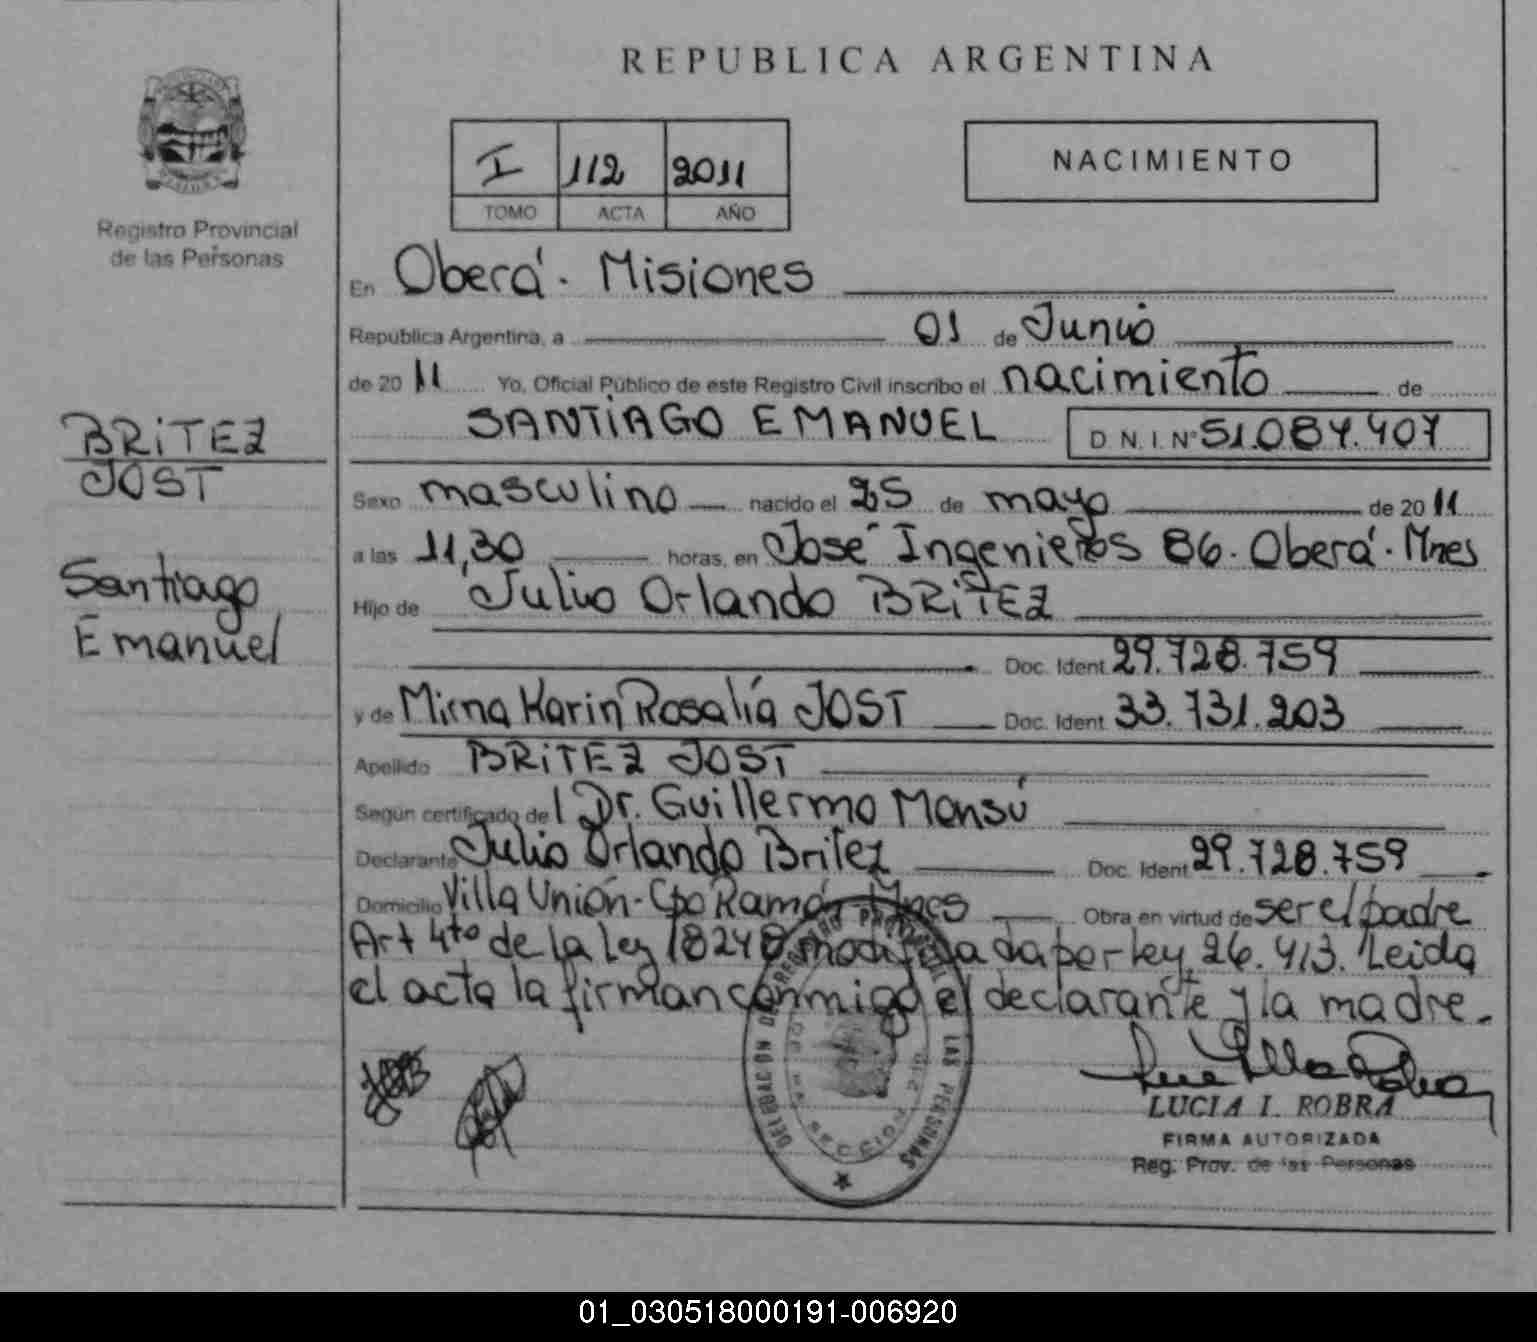 REPUBLICA ARGENTINA
I 112 2011
TOMO ACTA AÑO
NACIMIENTO
Registro Provincial
de las Personas
BRITEZ
JOST
Santiago
Emanuel
En Oberá - Misiones
República Argentina, a 01 de Junio
de 20 11 Yo, Oficial Público de este Registro Civil inscribo el nacimiento de
SANTIAGO EMANUEL D.N.I.Nº 51.084.407
Sexo masculino nacido el 25 de mayo de 20 11
a las 11,30 horas, en José Ingenieros 86. Oberá. Mnes
Hijo de Julio Orlando BRITEZ
Doc. Ident. 29.728.759
y de Mirna Karin Rosalía JOST Doc. Ident. 33.731.203
Apellido BRITEZ JOST
Según certificado del Dr. Guillermo Monsú
Declarante Julio Orlando Britez Doc. Ident 29.728.759
Domicilio Villa Unión - Cpo Ramón - Mnes Obra en virtud de ser el padre
Art 4to de la Ley 18248 modificada por ley 26.413. Leida
el acta la firman conmigo el declarante y la madre.
DELEGACIÓN DEL REGISTRO PROVINCIAL DE LAS PERSONAS
LUCIA I. ROBRA
FIRMA AUTORIZADA
Reg. Prov. de las Personas
01_030518000191-006920